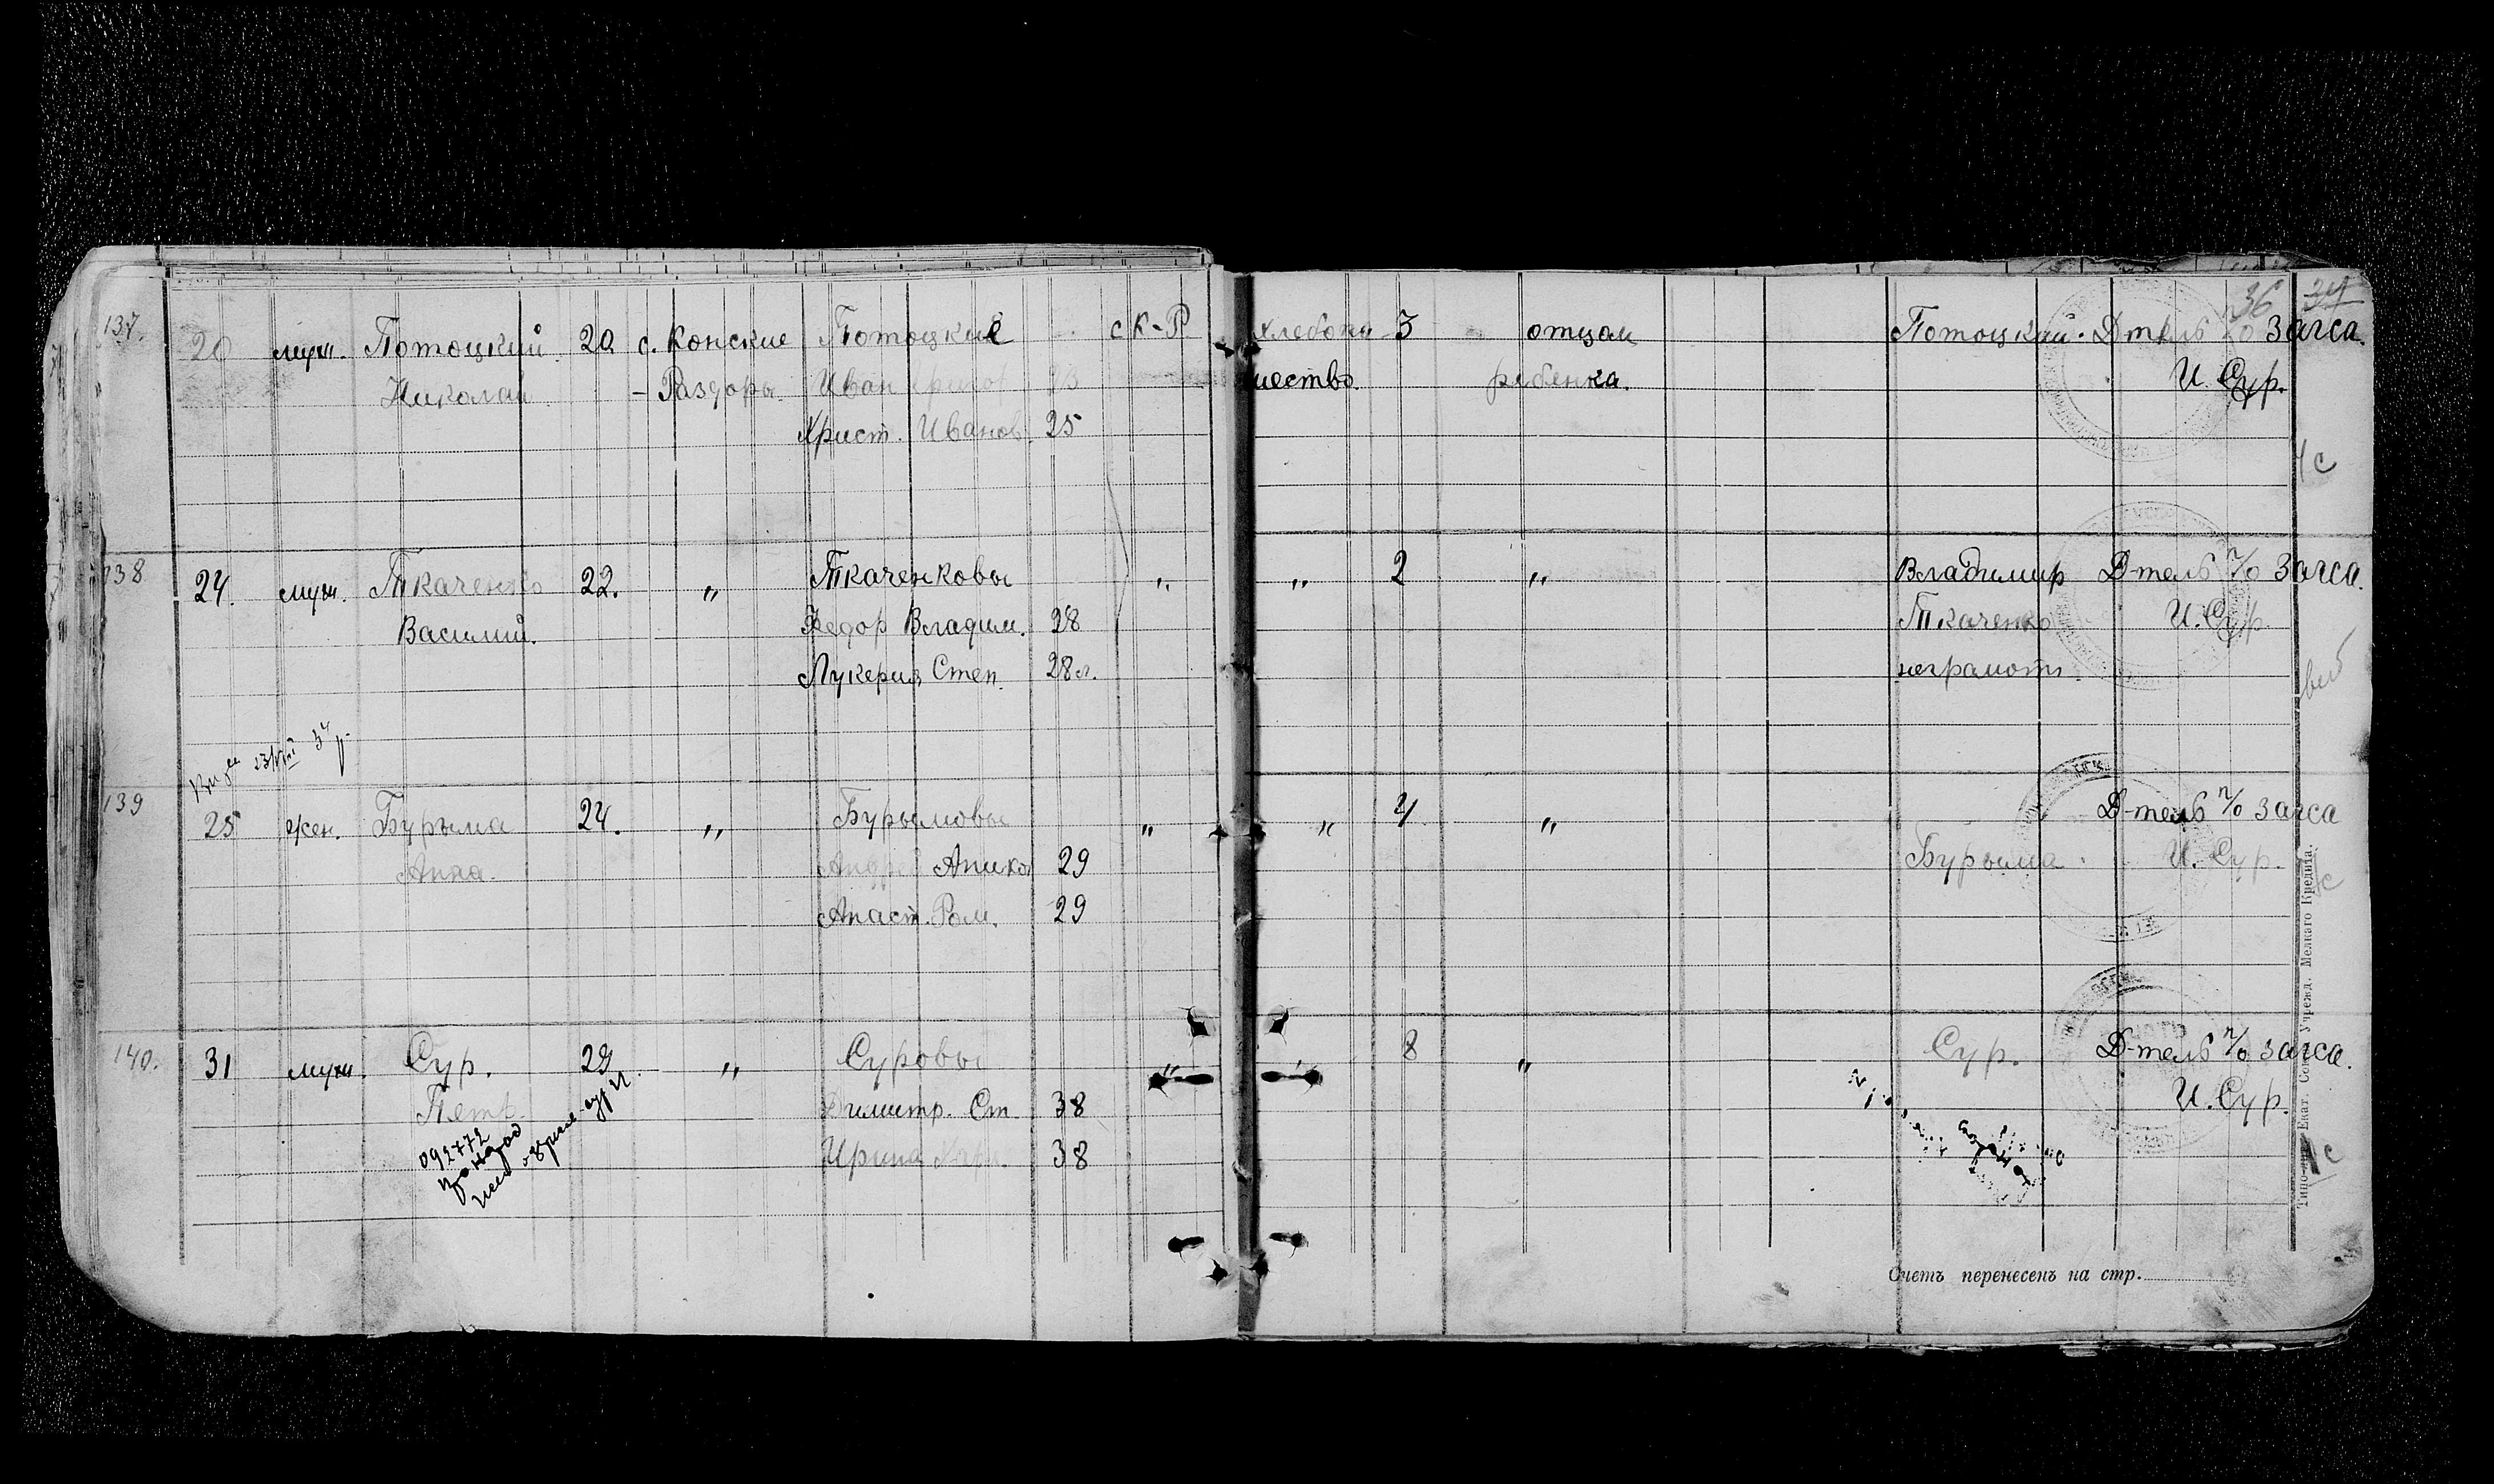 36 34
137. 20 муж. Потоцкий 20 с. Конские Потоцкие с К-Р хлебопа 3 отцом Потоцкий. Д-тель п/о Загса.
Николай - Раздоры Иван Григор 23 шество. ребенка. И. Сур.
Христ. Иванов. 25
138 24. муж. Ткаченко 22. " Ткаченковы " " 2 " Владимир Д-тель п/о Загса.
Василий. Федор Владим. 28 Ткаченко И. Сур.
Лукерия Степ. 28 л. неграмотн.
139 25 жен. Бурыма 24. " Бурымовы " " 4 " Д-тель п/о Загса
Анна. Андрей Аники 29 Бурыма. И. Сур.
Анаст. Ром. 29
140. 31 муж. Сур. 29 " Суровы " " 8 " Сур. Д-тель п/о Загса.
Петр. Димитр. Ст. 38 И. Сур.
Ирина 38
092772
Счетъ перенесенъ на стр.
Екат. Союза Учрежд. Мелкаго Кредита.